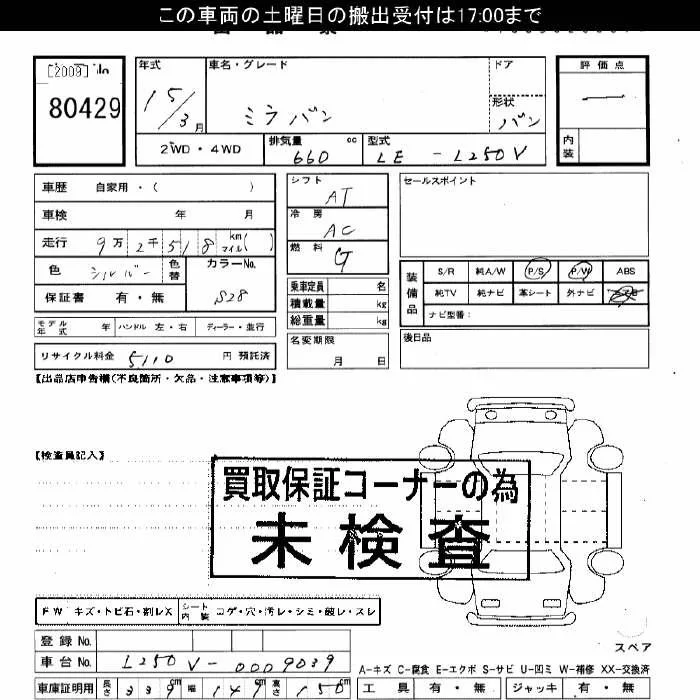 この車両の土曜日の搬出受付は17:00まで
[2009] No
80429
年式
15/3月
車名・グレード
ミラバン
ドア
形状
バン
評価点
—
内装
2WD・4WD
排気量 cc
660
型式
LE - L250V
車歴 自家用・( )
車検 年 月
走行 9万2千518 km マイル( )
色 シルバー 色替
カラーNo.
S28
保証書 有・無
モデル年式 年 ハンドル 左・右 ディーラー・並行
リサイクル料金 5110 円 預託済
シフト
AT
冷房
AC
燃料
G
乗車定員 名
積載量 kg
総重量 kg
名変期限
月 日
セールスポイント
装備品
S/R 純A/W P/S P/W ABS
純TV 純ナビ 革シート 外ナビ
ナビ型番:
後日品
【出品店申告欄(不良箇所・欠品・注意事項等)】
【検査員記入】
買取保証コーナーの為
未検査
FW キズ・トビ石・割レX
シート内装 コゲ・穴・汚レ・シミ・破レ・スレ
登録No.
車台No. L250V-0009039
車庫証明用 長さ 339cm 幅 149cm 高さ 150cm
スペア
A-キズ C-腐食 E-エクボ S-サビ U-凹ミ W-補修 XX-交換済
工具 有・無 ジャッキ 有・無